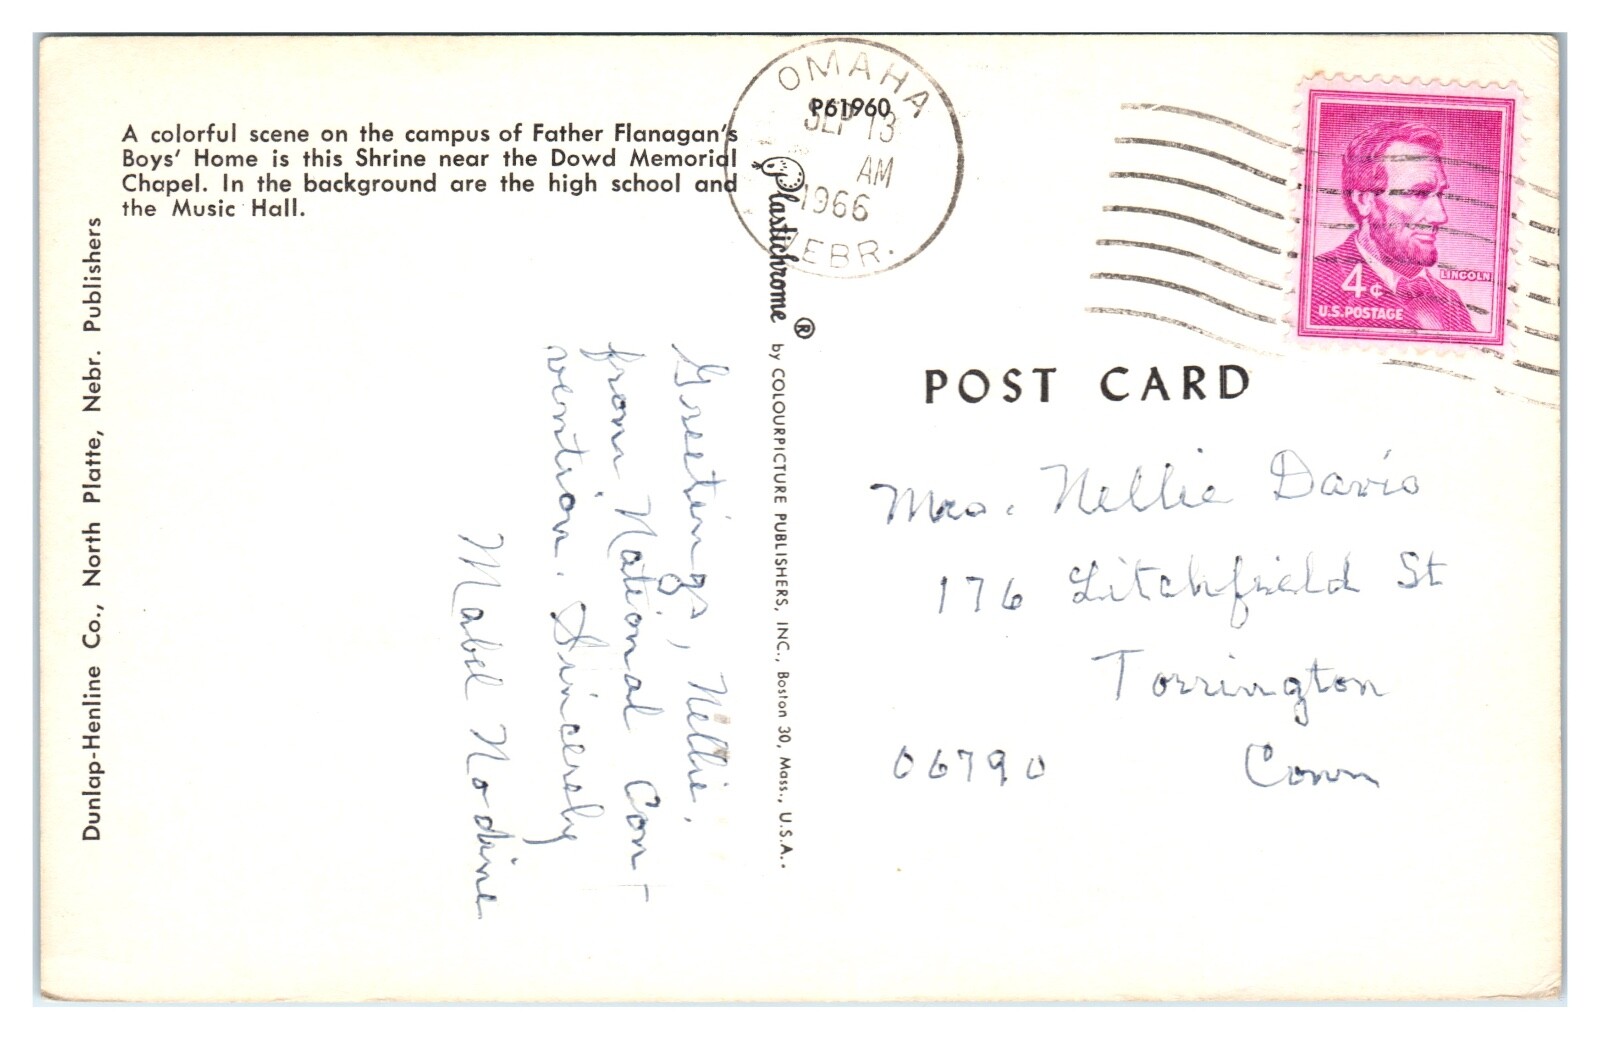 A colorful scene on the campus of Father Flanagan's
Boys' Home is this Shrine near the Dowd Memorial
Chapel. In the background are the high school and
the Music Hall.
Dunlap-Henline Co., North Platte, Nebr. Publishers
Greetings, Nellie,
from National Con-
vention. Sincerely
Mabel Nodine
P61960
Plastichrome ®
by COLOURPICTURE PUBLISHERS, INC., Boston 30, Mass., U.S.A..
OMAHA
SEP 13
AM
1966
NEBR.
LINCOLN
4¢
U.S. POSTAGE
POST CARD
Mrs. Nellie Davis
176 Litchfield St
Torrington
06790 Conn